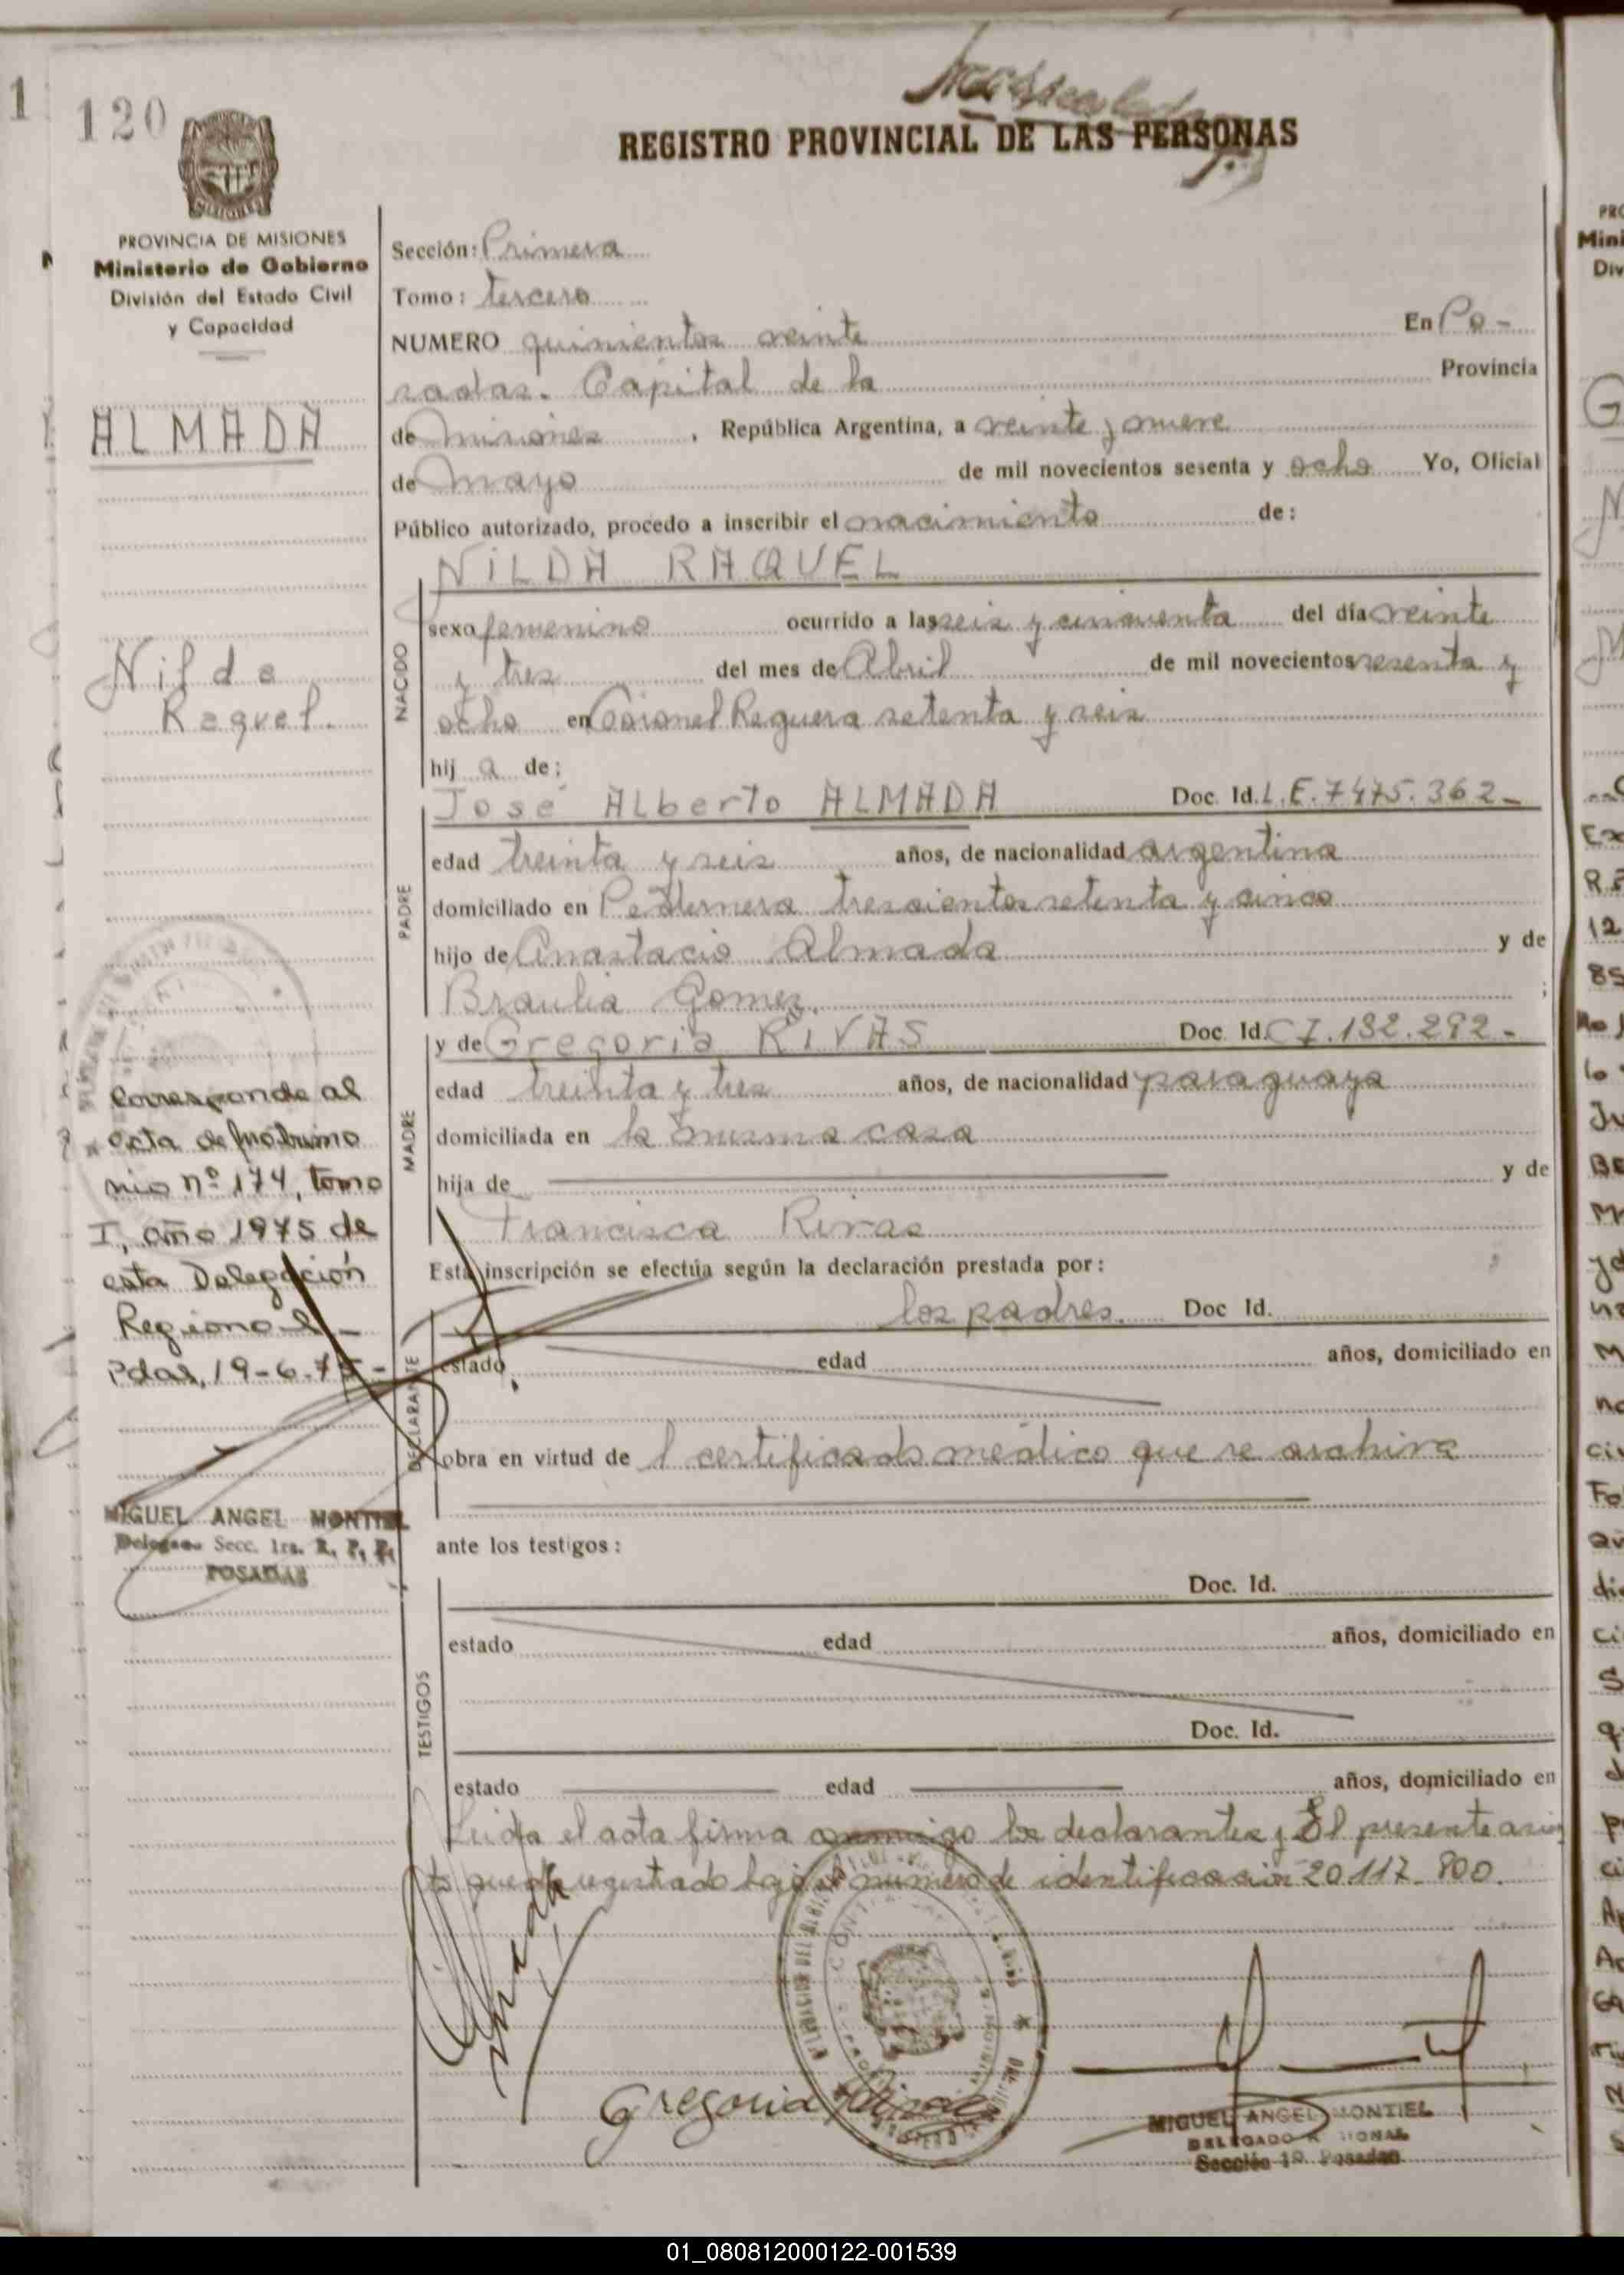 1
120
REGISTRO PROVINCIAL DE LAS PERSONAS
PROVINCIA DE MISIONES
Ministerio de Gobierno
División del Estado Civil
y Capacidad
ALMADA
Nilda
Raquel.
Corresponde al
acta de matrimo
nio nº 174, tomo
I, año 1975 de
esta Delegación
Regional -
Pdas, 19-6-75-
MIGUEL ANGEL MONTIEL
Delegado Secc. 1ra. R. P. P.
POSADAS
Sección: Primera
Tomo: tercero
NUMERO quinientos veinte En Po-
sadas. Capital de la Provincia
de misiones, República Argentina, a veinte y nueve
de mayo de mil novecientos sesenta y ocho Yo, Oficial
Público autorizado, procedo a inscribir el nacimiento de:
NILDA RAQUEL
NACIDO
sexo femenino ocurrido a las seis y cincuenta del día veinte
y tres del mes de Abril de mil novecientos sesenta y
ocho en Coronel Reguera setenta y seis
hij a de:
PADRE
José Alberto ALMADA Doc. Id. L.E. 7475.362-
edad treinta y seis años, de nacionalidad argentina
domiciliado en Pedernera trescientos setenta y cinco
hijo de Anastacio Almada y de
Braulia Gomez. ;
MADRE
y de Gregoria RIVAS Doc. Id. C I.132.292-
edad treinta y tres años, de nacionalidad paraguaya
domiciliada en la misma casa
hija de y de
Francisca Rivas
Esta inscripción se efectúa según la declaración prestada por:
DECLARANTE
los padres. Doc Id.
estado edad años, domiciliado en
obra en virtud de l certificado medico que se archiva
ante los testigos:
TESTIGOS
Doc. Id.
estado edad años, domiciliado en
Doc. Id.
estado edad años, domiciliado en
Leida el acta firma conmigo los declarantes y El presente asien
to queda registrado bajo el numero de identificación 20.117.800.
Almada
Gregoria Rivas
MIGUEL ANGEL MONTIEL
DELEGADO REGIONAL
Sección 1ª Posadas
01_080812000122-001539